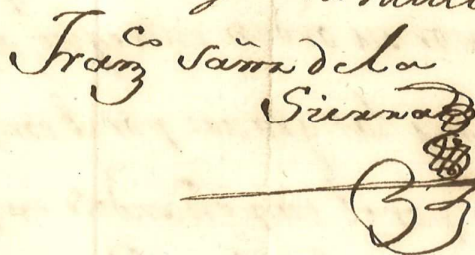 Franco Sānz de la
Sierra